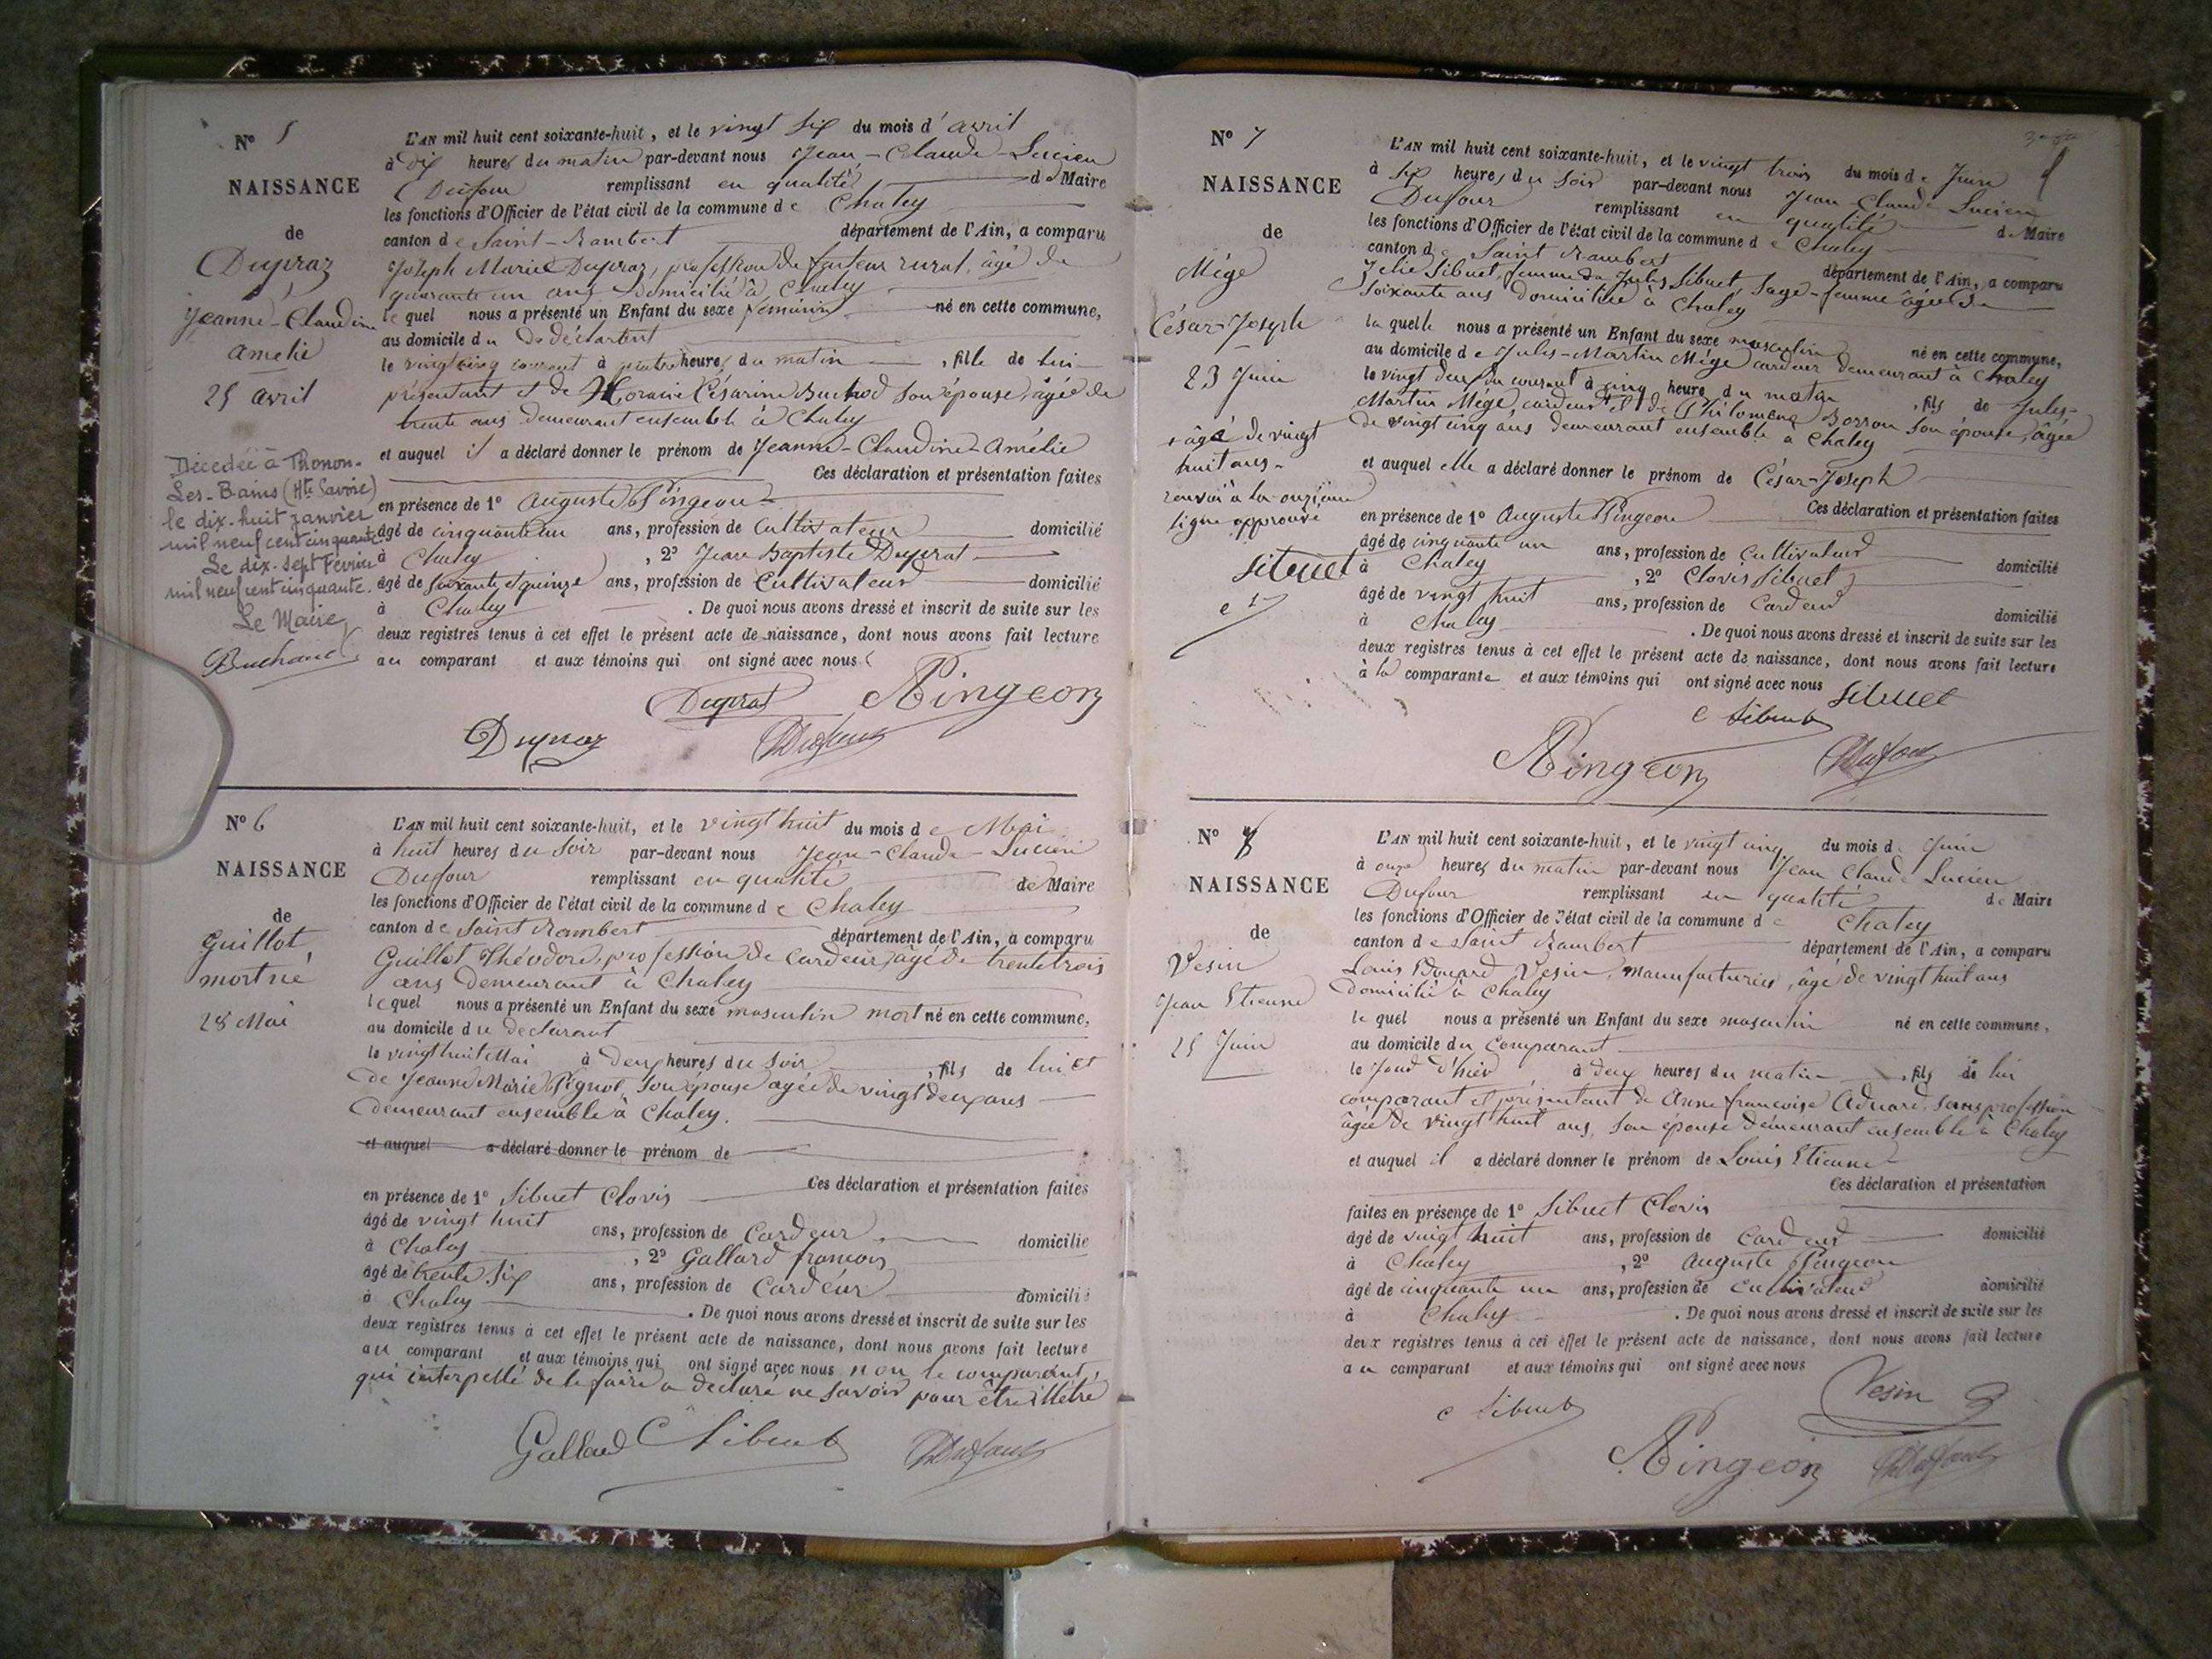 N° 5
NAISSANCE
de
Dupraz
Jeanne-Claudine
Amélie
25 avril
Décédée à Thonon-
Les-Bains (Hte Savoie)
le dix-huit janvier
mil neuf cent cinquante.
Le dix-sept Février
mil neuf cent cinquante.
Le Maire
L'AN mil huit cent soixante-huit, et le vingt six du mois d'avril
à dix heures du matin par-devant nous Jean-Claude-Lucien
Dufour remplissant en qualité de Maire
les fonctions d'Officier de l'état civil de la commune de Chaley
canton de Saint-Rambert département de l'Ain, a comparu
Joseph Marie Dupraz, profession de facteur rural, âgé de
quarante un ans domicilié à Chaley
lequel nous a présenté un Enfant du sexe féminin né en cette commune,
au domicile du déclarant
le vingt cinq courant à quatre heures du matin, fille de lui
présentant et de Césarine son épouse, âgée de
trente ans demeurant ensemble à Chaley
et auquel il a déclaré donner le prénom de Jeanne-Claudine-Amélie
Ces déclaration et présentation faites
en présence de 1° Auguste Pingeon
âgé de cinquante un ans, profession de Cultivateur domicilié
à Chaley, 2° Jean Baptiste Duprat
âgé de soixante et quinze ans, profession de Cultivateur domicilié
à Chaley. De quoi nous avons dressé et inscrit de suite sur les
deux registres tenus à cet effet le présent acte de naissance, dont nous avons fait lecture
au comparant et aux témoins qui ont signé avec nous
Duprat Pingeon
Dupraz Dufour
N° 6
NAISSANCE
de
Guillot
mort né
28 Mai
L'AN mil huit cent soixante-huit, et le vingt huit du mois de Mai
à huit heures du soir par-devant nous Jean-Claude-Lucien
Dufour remplissant en qualité de Maire
les fonctions d'Officier de l'état civil de la commune de Chaley
canton de Saint Rambert département de l'Ain, a comparu
Guillot Théodore, profession de Cardeur, agé de trente trois
ans demeurant à Chaley
lequel nous a présenté un Enfant du sexe masculin mort né en cette commune,
au domicile du declarant
le vingt huit Mai à deux heures du soir, fils de lui et
de Jeanne Marie son épouse agée de vingt deux ans
demeurant ensemble à Chaley.
et auquel a déclaré donner le prénom de
Ces déclaration et présentation faites
en présence de 1° Sibuet Clovis
âgé de vingt huit ans, profession de Cardeur domicilié
à Chaley, 2° Gallard françois
âgé de trente six ans, profession de Cardeur domicilié
à Chaley. De quoi nous avons dressé et inscrit de suite sur les
deux registres tenus à cet effet le présent acte de naissance, dont nous avons fait lecture
au comparant et aux témoins qui ont signé avec nous non le comparant
qui interpellé de le faire a declaré ne savoir pour être illétré
Gallard C Sibuet Dufour
N° 7
NAISSANCE
de
Mége
César-Joseph
23 Juin
âgé de vingt
huit ans
renvoi à la onzième
ligne approuvé
Sibuet
L'AN mil huit cent soixante-huit, et le vingt trois du mois de Juin
à six heures du soir par-devant nous Jean-Claude Lucien
Dufour remplissant en qualité de Maire
les fonctions d'Officier de l'état civil de la commune de Chaley
canton de Saint Rambert département de l'Ain, a comparu
Sibuet, femme de Jules Sibuet, sage-femme âgée de
soixante ans domiciliée à Chaley
laquelle nous a présenté un Enfant du sexe masculin né en cette commune,
au domicile de Jules-Martin Mége cardeur demeurant à Chaley
le vingt deux du courant à cinq heure du matin, fils de Jules-
Martin Mége, cardeur et de Philomène Borron son épouse, âgée
de vingt cinq ans demeurant ensemble à Chaley
et auquel elle a déclaré donner le prénom de César-Joseph
Ces déclaration et présentation faites
en présence de 1° Auguste Pingeon
âgé de cinquante un ans, profession de Cultivateur domicilié
à Chaley, 2° Clovis Sibuet
âgé de vingt huit ans, profession de Cardeur domicilié
à Chaley. De quoi nous avons dressé et inscrit de suite sur les
deux registres tenus à cet effet le présent acte de naissance, dont nous avons fait lecture
à la comparante et aux témoins qui ont signé avec nous Sibuet
C Sibuet
Pingeon Dufour
N° 8
NAISSANCE
de
Vesin
Jean Etienne
25 Juin
L'AN mil huit cent soixante-huit, et le vingt cinq du mois de Juin
à onze heures du matin par-devant nous Jean Claude Lucien
Dufour remplissant en qualité de Maire
les fonctions d'Officier de l'état civil de la commune de Chaley
canton de Saint Rambert département de l'Ain, a comparu
Louis Edouard Vesin, manufacturier, âgé de vingt huit ans
domicilié à Chaley
lequel nous a présenté un Enfant du sexe masculin né en cette commune,
au domicile du comparant
le jour d'hier à deux heures du matin, fils de lui
comparant et présentant de Anne françoise sans profession
âgée de vingt huit ans, son épouse demeurant ensemble à Chaley
et auquel il a déclaré donner le prénom de Louis Etienne
Ces déclaration et présentation
faites en présence de 1° Sibuet Clovis
âgé de vingt huit ans, profession de Cardeur domicilié
à Chaley, 2° Auguste Pingeon
âgé de cinquante un ans, profession de Cultivateur domicilié
à Chaley. De quoi nous avons dressé et inscrit de suite sur les
deux registres tenus à cet effet le présent acte de naissance, dont nous avons fait lecture
au comparant et aux témoins qui ont signé avec nous
C Sibuet Vesin
Pingeon Dufour